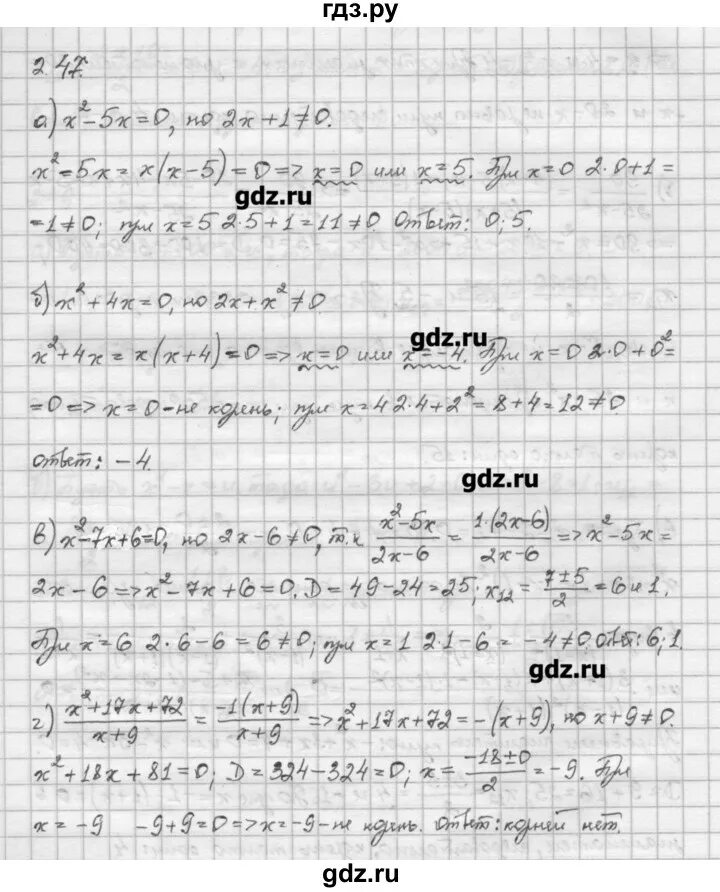 гдз.ру
2.47.
а) x²-5x=0, но 2x+1≠0.
x²=5x= x(x-5)=0=> x=0 или x=5. При x=0 2·0+1=
gdz.ru
=1≠0; при x=5 2·5+1=11≠0 Ответ: 0; 5.
б) x²+4x=0, но 2x+x²≠0
gdz.ru
x²+4x= x(x+4)=0=> x=0 или x=-4. При x=0 2·0+0²=
=0=> x=0-не корень; при x=4 2·4+2²=8+4=12≠0
ответ: -4.
gdz.ru
в) x²-7x+6=0, но 2x-6≠0, т.к. (x²-5x)/(2x-6) = (1·(2x-6))/(2x-6) => x²-5x=
2x-6=>x²-7x+6=0. D=49-24=25; x₁₂= (7±5)/2 =6 и 1.
При x=6 2·6-6=6≠0; при x=1 2·1-6= -4≠0. Ответ: 6; 1.
gdz.ru
г) (x²+17x+72)/(x+9) = (-1(x+9))/(x+9) => x²+17x+72=-(x+9), но x+9≠0.
x²+18x+81=0; D=324-324=0; x= (-18±0)/2 =-9. При
x=-9 -9+9=0=>x=-9-не корень. ответ: корней нет.
gdz.ru